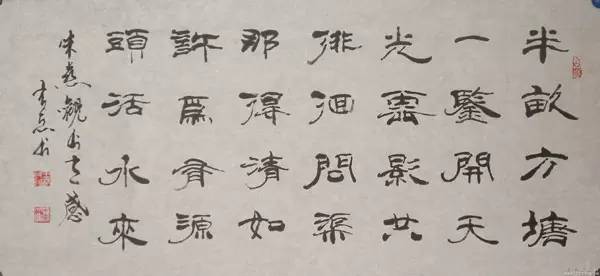 半畝方塘
一鑒開天
光雲影共
徘徊問渠
那得清如
許爲有源
頭活水來
朱熹觀书有感